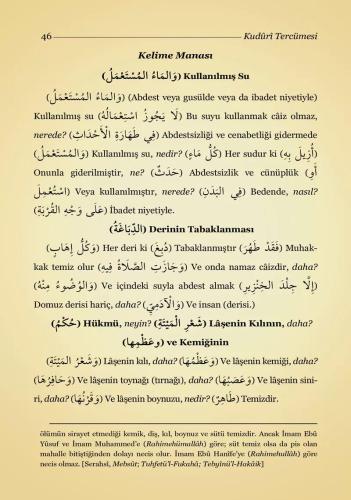 46 Kudûrî Tercümesi
Kelime Manası
(وَالْمَاءُ الْمُسْتَعْمَلُ) Kullanılmış Su
(وَالْمَاءُ الْمُسْتَعْمَلُ) (Abdest veya gusülde veya da ibadet niyetiyle)
Kullanılmış su (لَا يَجُوزُ اسْتِعْمَالُهُ) Bu suyu kullanmak câiz olmaz,
nerede? (فِي طَهَارَةِ الْأَحْدَاثِ) Abdestsizliği ve cenabetliği gidermede
(وَالْمُسْتَعْمَلُ) Kullanılmış su, nedir? (كُلُّ مَاءٍ) Her sudur ki (أُزِيلَ بِهِ)
Onunla giderilmiştir, ne? (حَدَثٌ) Abdestsizlik ve cünüplük (أَوِ
اسْتُعْمِلَ) Veya kullanılmıştır, nerede? (فِي الْبَدَنِ) Bedende, nasıl?
(عَلَى وَجْهِ الْقُرْبَةِ) İbadet niyetiyle.
(الدِّبَاغَةُ) Derinin Tabaklanması
(وَكُلُّ إِهَابٍ) Her deri ki (دُبِغَ) Tabaklanmıştır (فَقَدْ طَهُرَ) Muhak-
kak temiz olur (وَجَازَتِ الصَّلَاةُ فِيهِ) Ve onda namaz câizdir, daha?
(وَالْوُضُوءُ مِنْهُ) Ve içindeki suyla abdest almak (إِلَّا جِلْدَ الْخِنْزِيرِ)
Domuz derisi hariç, daha? (وَالْآدَمِيِّ) Ve insan (derisi.)
(حُكْمُ) Hükmü, neyin? (شَعْرِ الْمَيْتَةِ) Lâşenin Kılının, daha?
(وعَظْمِهَا) ve Kemiğinin
(وَشَعْرُ الْمَيْتَةِ) Lâşenin kılı, daha? (وَعَظْمُهَا) Ve lâşenin kemiği, daha?
(وَحَافِرُهَا) Ve lâşenin toynağı (tırnağı), daha? (وَعَصَبُهَا) Ve lâşenin sini-
ri, daha? (وَقَرْنُهَا) Ve lâşenin boynuzu, nedir? (طَاهِرٌ) Temizdir.
ölümün sirayet etmediği kemik, diş, kıl, boynuz ve sütü temizdir. Ancak İmam Ebû
Yûsuf ve İmam Muhammed'e (Rahimehümallâh) göre; süt temiz olsa da pis olan
mahalle bitiştiğinden dolayı necis olur. İmam Ebû Hanîfe'ye (Rahimehullâh) göre
necis olmaz. [Serahsî, Mebsût; Tuhfetü'l-Fukahâ; Tebyînü'l-Hakâik]